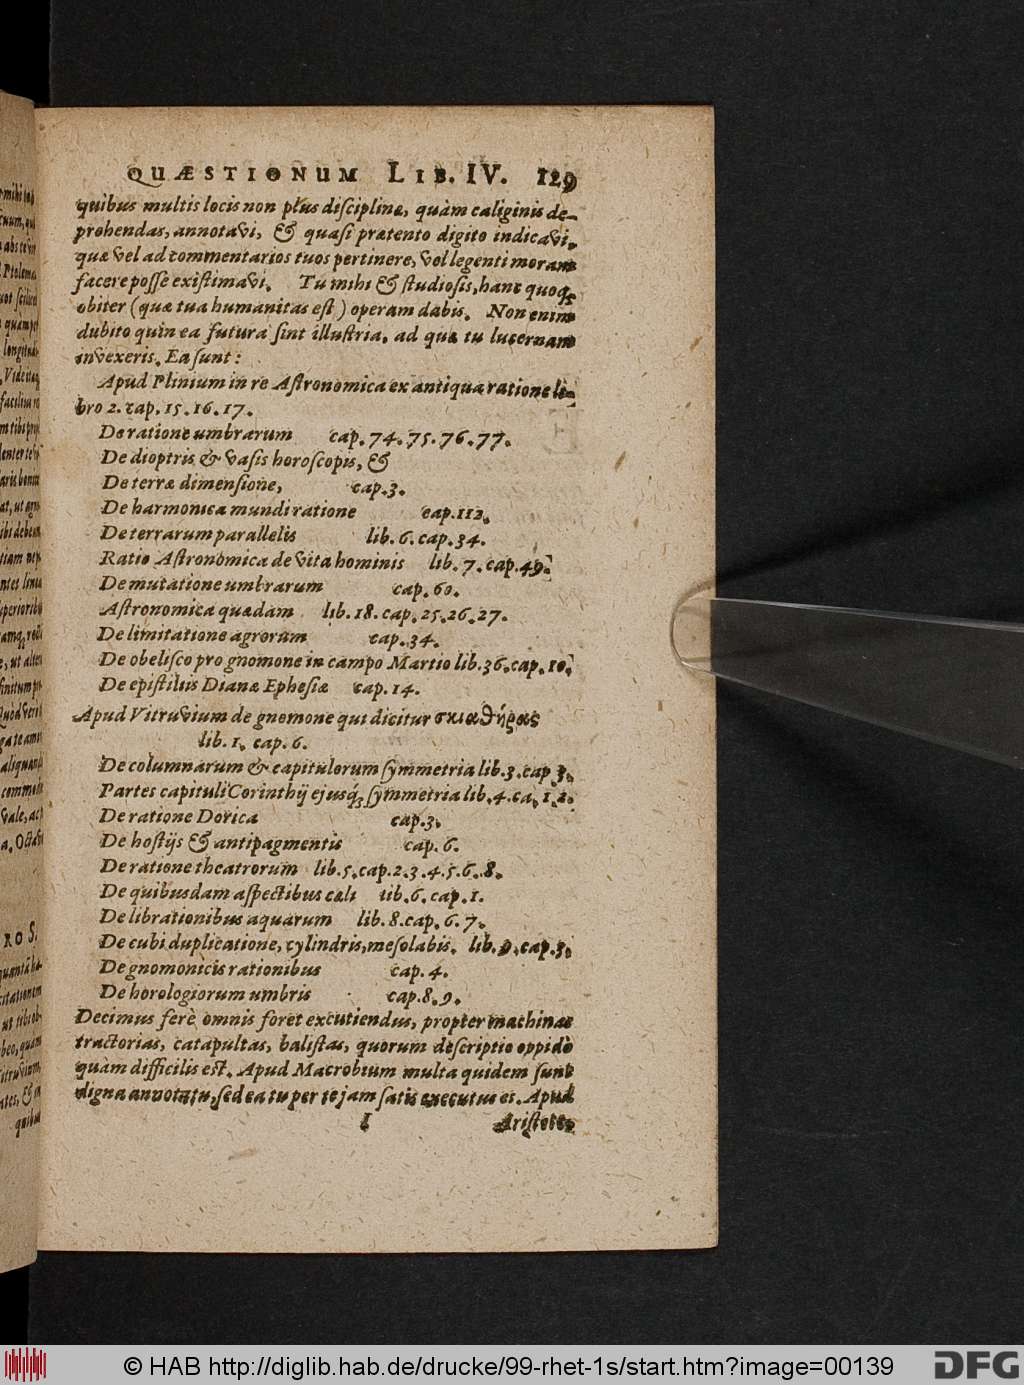 QUÆSTIONUM LIB. IV. 129
quibus multis locis non plus disciplinæ, quàm caliginis de-
prehendas, annotavi, & quasi prætento digito indicavi,
quæ vel ad commentarios tuos pertinere, vel legenti moram
facere posse existimavi. Tu mihi & studiosis, hanc quoq;
obiter (quæ tua humanitas est) operam dabis. Non enim
dubito quin ea futura sint illustria, ad quæ tu lucernam
invexeris. Ea sunt:
Apud Plinium in re Astronomica ex antiqua ratione li-
bro 2. cap. 15. 16. 17.
De ratione umbrarum cap. 74. 75. 76. 77.
De dioptris & vasis horoscopis, &
De terræ dimensione, cap. 3.
De harmonica mundi ratione cap. 112.
De terrarum parallelis lib. 6. cap. 34.
Ratio Astronomica de vita hominis lib. 7. cap. 49.
De mutatione umbrarum cap. 60.
Astronomica quædam lib. 18. cap. 25. 26. 27.
De limitatione agrorum cap. 34.
De obelisco pro gnomone in campo Martio lib. 36. cap. 10.
De epistiliis Dianæ Ephesiæ cap. 14.
Apud Vitruvium de gnomone qui dicitur σκιαθήρας
lib. 1. cap. 6.
De columnarum & capitulorum symmetria lib. 3. cap 3.
Partes capituli Corinthij ejusq́; symmetria lib. 4. ca. 1. 2.
De ratione Dorica cap. 3.
De hostijs & antipagmentis cap. 6.
De ratione theatrorum lib. 5. cap. 2. 3. 4. 5. 6. 8.
De quibusdam aspectibus cæli lib. 6. cap. 1.
De librationibus aquarum lib. 8. cap. 6. 7.
De cubi duplicatione, cylindris, mesolabis. lib. 9. cap. 3.
De gnomonicis rationibus cap. 4.
De horologiorum umbris cap. 8. 9.
Decimus ferè omnis foret excutiendus, propter machinas
tractorias, catapultas, balistas, quorum descriptio oppidò
quàm difficilis est. Apud Macrobium multa quidem sunt
digna annotatu, sed ea tu per te jam satis executus es. Apud
I Aristote-
© HAB http://diglib.hab.de/drucke/99-rhet-1s/start.htm?image=00139
DFG